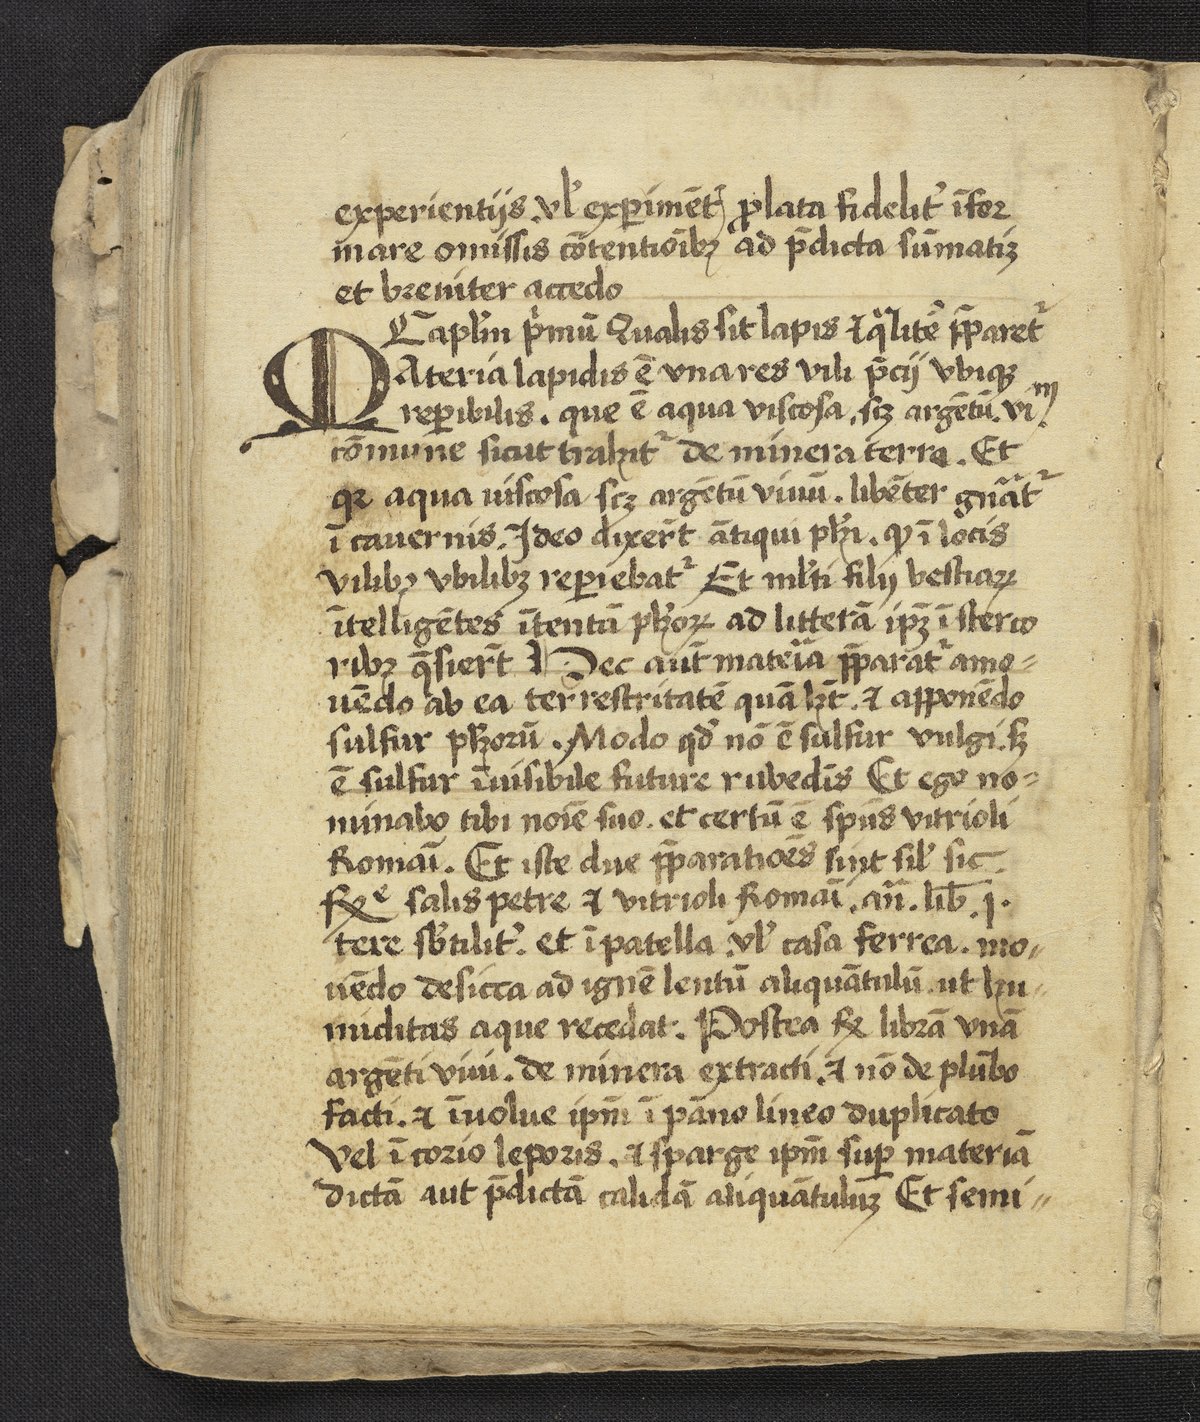 experientijs. vl' exp̱imēt᷒ ꝓlata fidelit᷑ īfor
mare omissis cōtentiōibꝫ ad p̄dicta sūmatiꝫ
et breuiter accedo
Capl'm p'mū Qualis sit lapis ⁊ qͣlit᷑ p̄paret᷑
Materia lapidis ē vna res vili p̄cij vbiqꝫ
rep̱ibilis. que ē aqua viscosa. scꝫ argētū. viᵐ.
cōmune sicut trahit᷑ de minera terra. Et
qꝛ aqua uiscosa scꝫ argētū viuū. libēter gn̄at᷑
ī cauernis. Ideo dixer̄t ātiqui ph'i. ꝙ ī locis
vilibꝫ vbilibꝫ rep̱iebat᷑ Et ml'ti filij bestiaꝝ
ītelligētes ītentū ph'oꝝ ad litterā ipꝫ ī sterco
ribꝫ q̄sier̄t Hec aut̄ mateͥa p̄parat᷑ amo⸗
uēdo ab ea terrestritatē quā hꝫt. ⁊ apponēdo
sulfur ph'orū. Modo qd' nō ē sulfur vulgi. sꝫ
ē sulfur īuisibile future rubedīs Et ego no⸗
minabo tibi noīe suo. et certū ē spūs vitrioli
Romaī. Et iste due p̄paratioēs sint sil' sic
℞ᵉ salis petre ⁊ vitrioli Romaī. an̄. lib̄. j.
tere sb'tilit᷑. et ī patella vl' casa ferrea. mo⸗
uēdo desicca ad ignē lentū aliquātulū ut hu⸗
miditas aque recedat. Postea ℞ librā vnā
argēti viui. de minera extracti. ⁊ nō de plūbo
facti. ⁊ īuolue ipm̄ ī pāno lineo duplicato
Vel ī corio leporis. ⁊ sparge ipm̄ suꝑ materiā
dictā aut p̄dictā calidā aliquātuluꝫ Et semi⸗